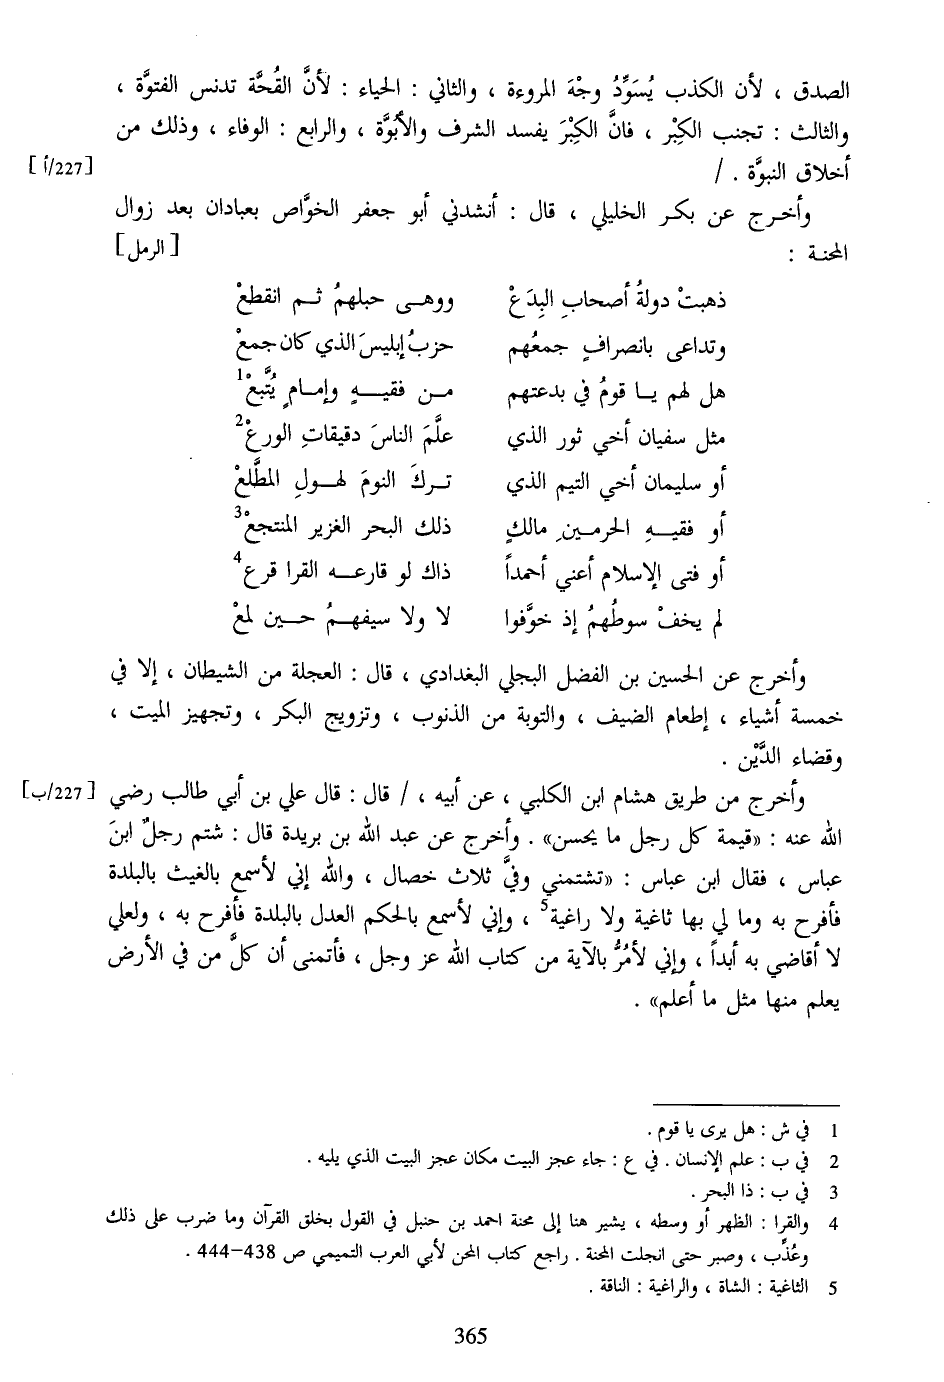 الصدق ، لأن الكذب يُسَوِّدُ وجْهَ المروءة ، والثاني : الحياء : لأنَّ القُحَّة تدنس الفتوَّة ،
والثالث : تجنب الكِبْر ، فانَّ الكِبْرَ يفسد الشرف والأُبُوَّة ، والرابع : الوفاء ، وذلك من
أخلاق النبوَّة . / [227/أ]
وأخرج عن بكر الخليلي ، قال : أنشدني أبو جعفر الخوَّاص بعبادان بعد زوال
المحنة : [الرمل]
ذهبتْ دولةُ أصحابِ البِدَعْ ووهى حبلهمُ ثم انقطعْ
وتداعى بانصرافٍ جمعُهم حزبُ إبليسَ الذي كان جمعْ
هل لهم يا قومُ في بدعتهم من فقيهٍ وإمامٍ يُتَّبعْ1
مثل سفيان أخي ثور الذي علَّمَ الناسَ دقيقاتِ الورعْ2
أو سليمان أخي التيم الذي تركَ النومَ لهولِ المطَّلعْ
أو فقيهِ الحرمين مالكٍ ذلك البحر الغزير المنتجعْ3
أو فتى الإسلام أعني أحمداً ذاك لو قارعه القرا قرع4
لم يخفْ سوطُهمُ إذ خوَّفوا لا ولا سيفهمُ حين لمعْ
وأخرج عن الحسين بن الفضل البجلي البغدادي ، قال : العجلة من الشيطان ، إلا في
خمسة أشياء ، إطعام الضيف ، والتوبة من الذنوب ، وتزويج البكر ، وتجهيز الميت ،
وقضاء الدَّيْن .
وأخرج من طريق هشام ابن الكلبي ، عن أبيه ، / قال : قال علي بن أبي طالب رضي [227/ب]
الله عنه : «قيمة كل رجل ما يحسن» . وأخرج عن عبد الله بن بريدة قال : شتم رجلٌ ابنَ
عباس ، فقال ابن عباس : «تشتمني وفيَّ ثلاث خصال ، والله إني لأسمع بالغيث بالبلدة
فأفرح به وما لي بها ثاغية ولا راغية5 ، وإني لأسمع بالحكم العدل بالبلدة فأفرح به ، ولعلي
لا أقاضي به أبداً ، وإني لأمُرُّ بالآية من كتاب الله عز وجل ، فأتمنى أن كلَّ من في الأرض
يعلم منها مثل ما أعلم» .
1 في ش : هل يرى يا قوم .
2 في ب : علم الإنسان . في ع : جاء عجز البيت مكان عجز البيت الذي يليه .
3 في ب : ذا البحر .
4 والقرا : الظهر أو وسطه ، يشير هنا إلى محنة احمد بن حنبل في القول بخلق القرآن وما ضرب على ذلك
وعُذِّب ، وصبر حتى انجلت المحنة . راجع كتاب المحن لأبي العرب التميمي ص 438–444 .
5 الثاغية : الشاة ، والراغية : الناقة .
365